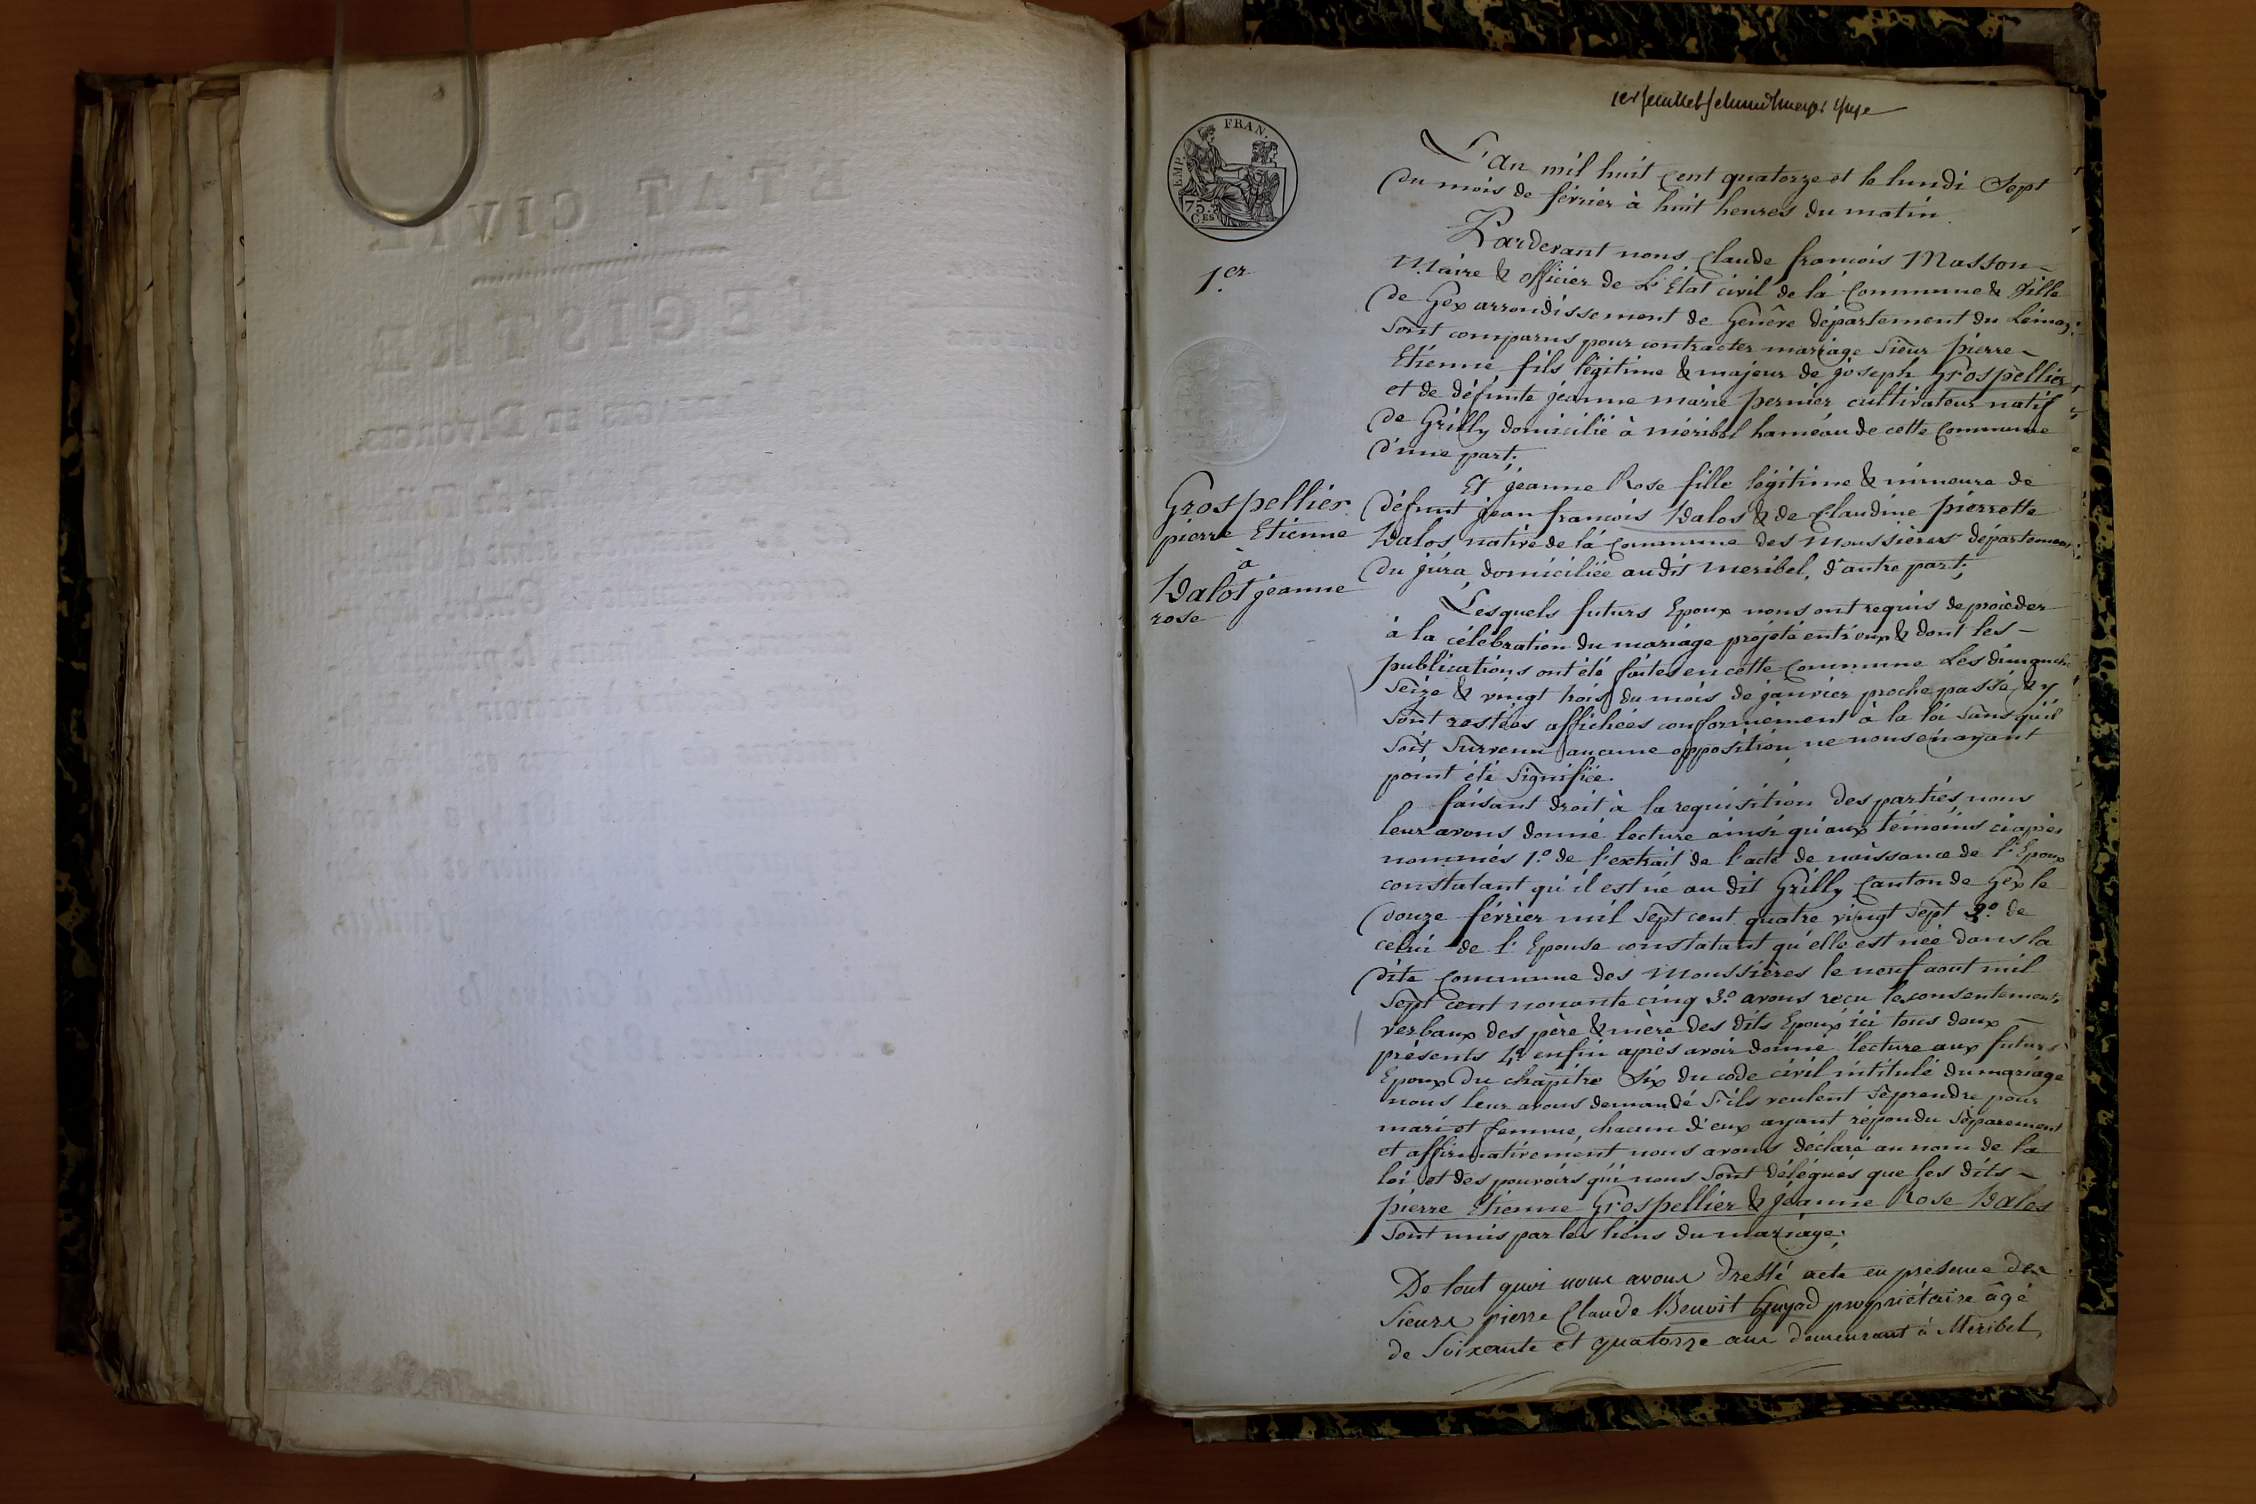 1er feuillet
EMP. FRAN.
75.
CES
L'an mil huit cent quatorze et le lundi Sept
du mois de février à huit heures du matin.
Pardevant nous Claude francois Masson
Maire & officier de L'État civil de la Commune & Ville
de Gex arrondissement de Genêve département du Léman
Sont comparus pour contracter mariage Sieur pierre
Etienne fils légitime & majeur de joseph Grospellier
et de défunte jeanne marie pernier cultivateur natif
de Grilly domicilié à méribel hameau de cette Commune
d'une part.
Et jeanne Rose fille légitime & mineure de
défunt jean francois Dalos & de Claudine pierrette
Dalos native de la Commune des Moussières département
du jura, domiciliée au dit meribel, d'autre part;
1.er
Grospellier
pierre Etienne
à
Dalot jeanne
rose
Lesquels futurs Epoux nous ont requis de procèder
à la célébration du mariage projeté entr'eux & dont les
publications ont été faites en cette Commune Les dimanche
Seize & vingt trois du mois de janvier proche passé & y
Sont restées affichées conformément à la loi Sans qu'il
Soit Survenu aucune opposition, ne nous en ayant
point été Signifiée.
faisant droit à la requisition des parties nous
leur avons donné lecture ainsi qu'aux témoins ci après
nommés 1.º de l'extrait de l'acte de naissance de l'Epoux
constatant qu'il est né au dit Grilly Canton de Gex le
douze février mil Sept cent quatre vingt Sept 2.º de
celui de l'Epouse constatant qu'elle est née dans la
dite Commune des Moussières le neuf aout mil
Sept cent nonante cinq 3.º avons reçu les consentements
verbaux des père & mère des dits Epoux ici tous deux
présents 4.º enfin après avoir donné lecture aux futurs
Epoux du chapitre Six du code civil intitulé du mariage
nous leur avons demandé S'ils veulent Se prendre pour
mari et femme, chacun d'eux ayant répondu Séparement
et affirmativement nous avons déclaré au nom de la
loi et des pouvoirs qui nous Sont délégués que les dits
pierre Etienne Grospellier & jeanne Rose Dalos
Sont unis par les liens du mariage.
De tout quoi nous avons dressé acte en présence des
Sieurs pierre Claude Benoit Guyod propriétaire âgé
de Soixante et quatorze ans demeurant à Méribel,